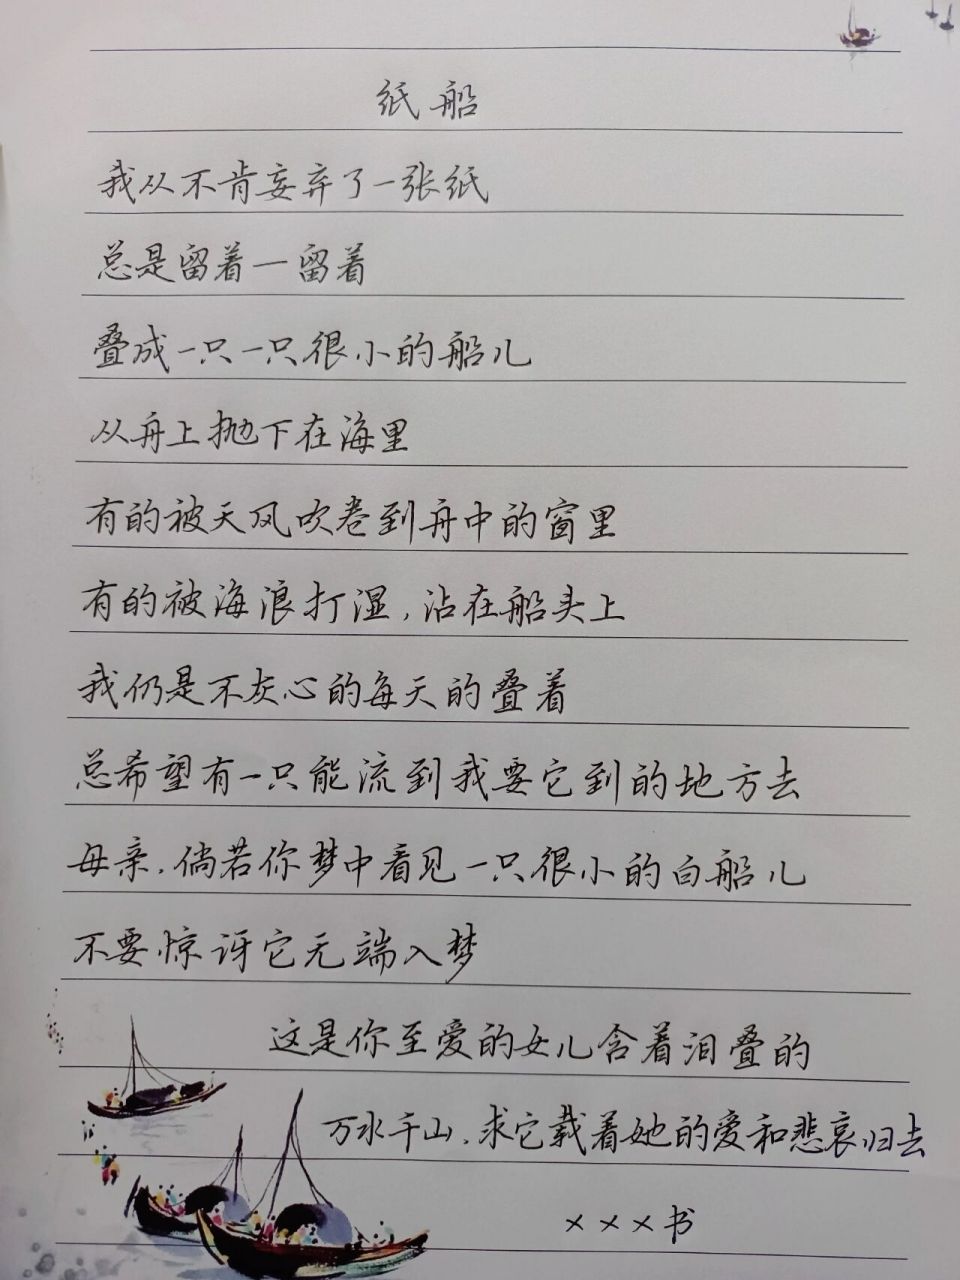 纸船
我从不肯妄弃了一张纸
总是留着—留着
叠成一只一只很小的船儿
从舟上抛下在海里
有的被天风吹卷到舟中的窗里
有的被海浪打湿,沾在船头上
我仍是不灰心的每天的叠着
总希望有一只能流到我要它到的地方去
母亲,倘若你梦中看见一只很小的白船儿
不要惊讶它无端入梦
这是你至爱的女儿含着泪叠的
万水千山,求它载着她的爱和悲哀归去
×××书